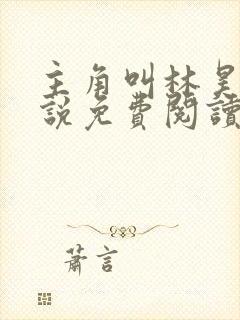 主角叫林昊
說免費閱讀
蕭言